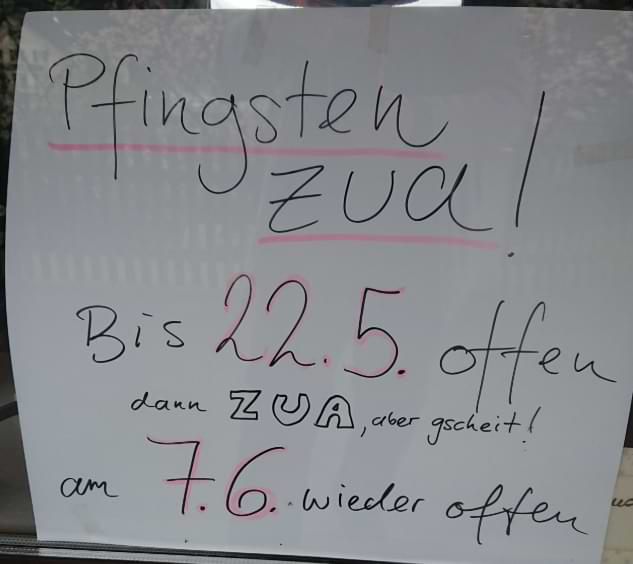 Pfingsten
ZUA!
Bis 22.5. offen
dann ZUA, aber gscheit!
am 7.6. wieder offen